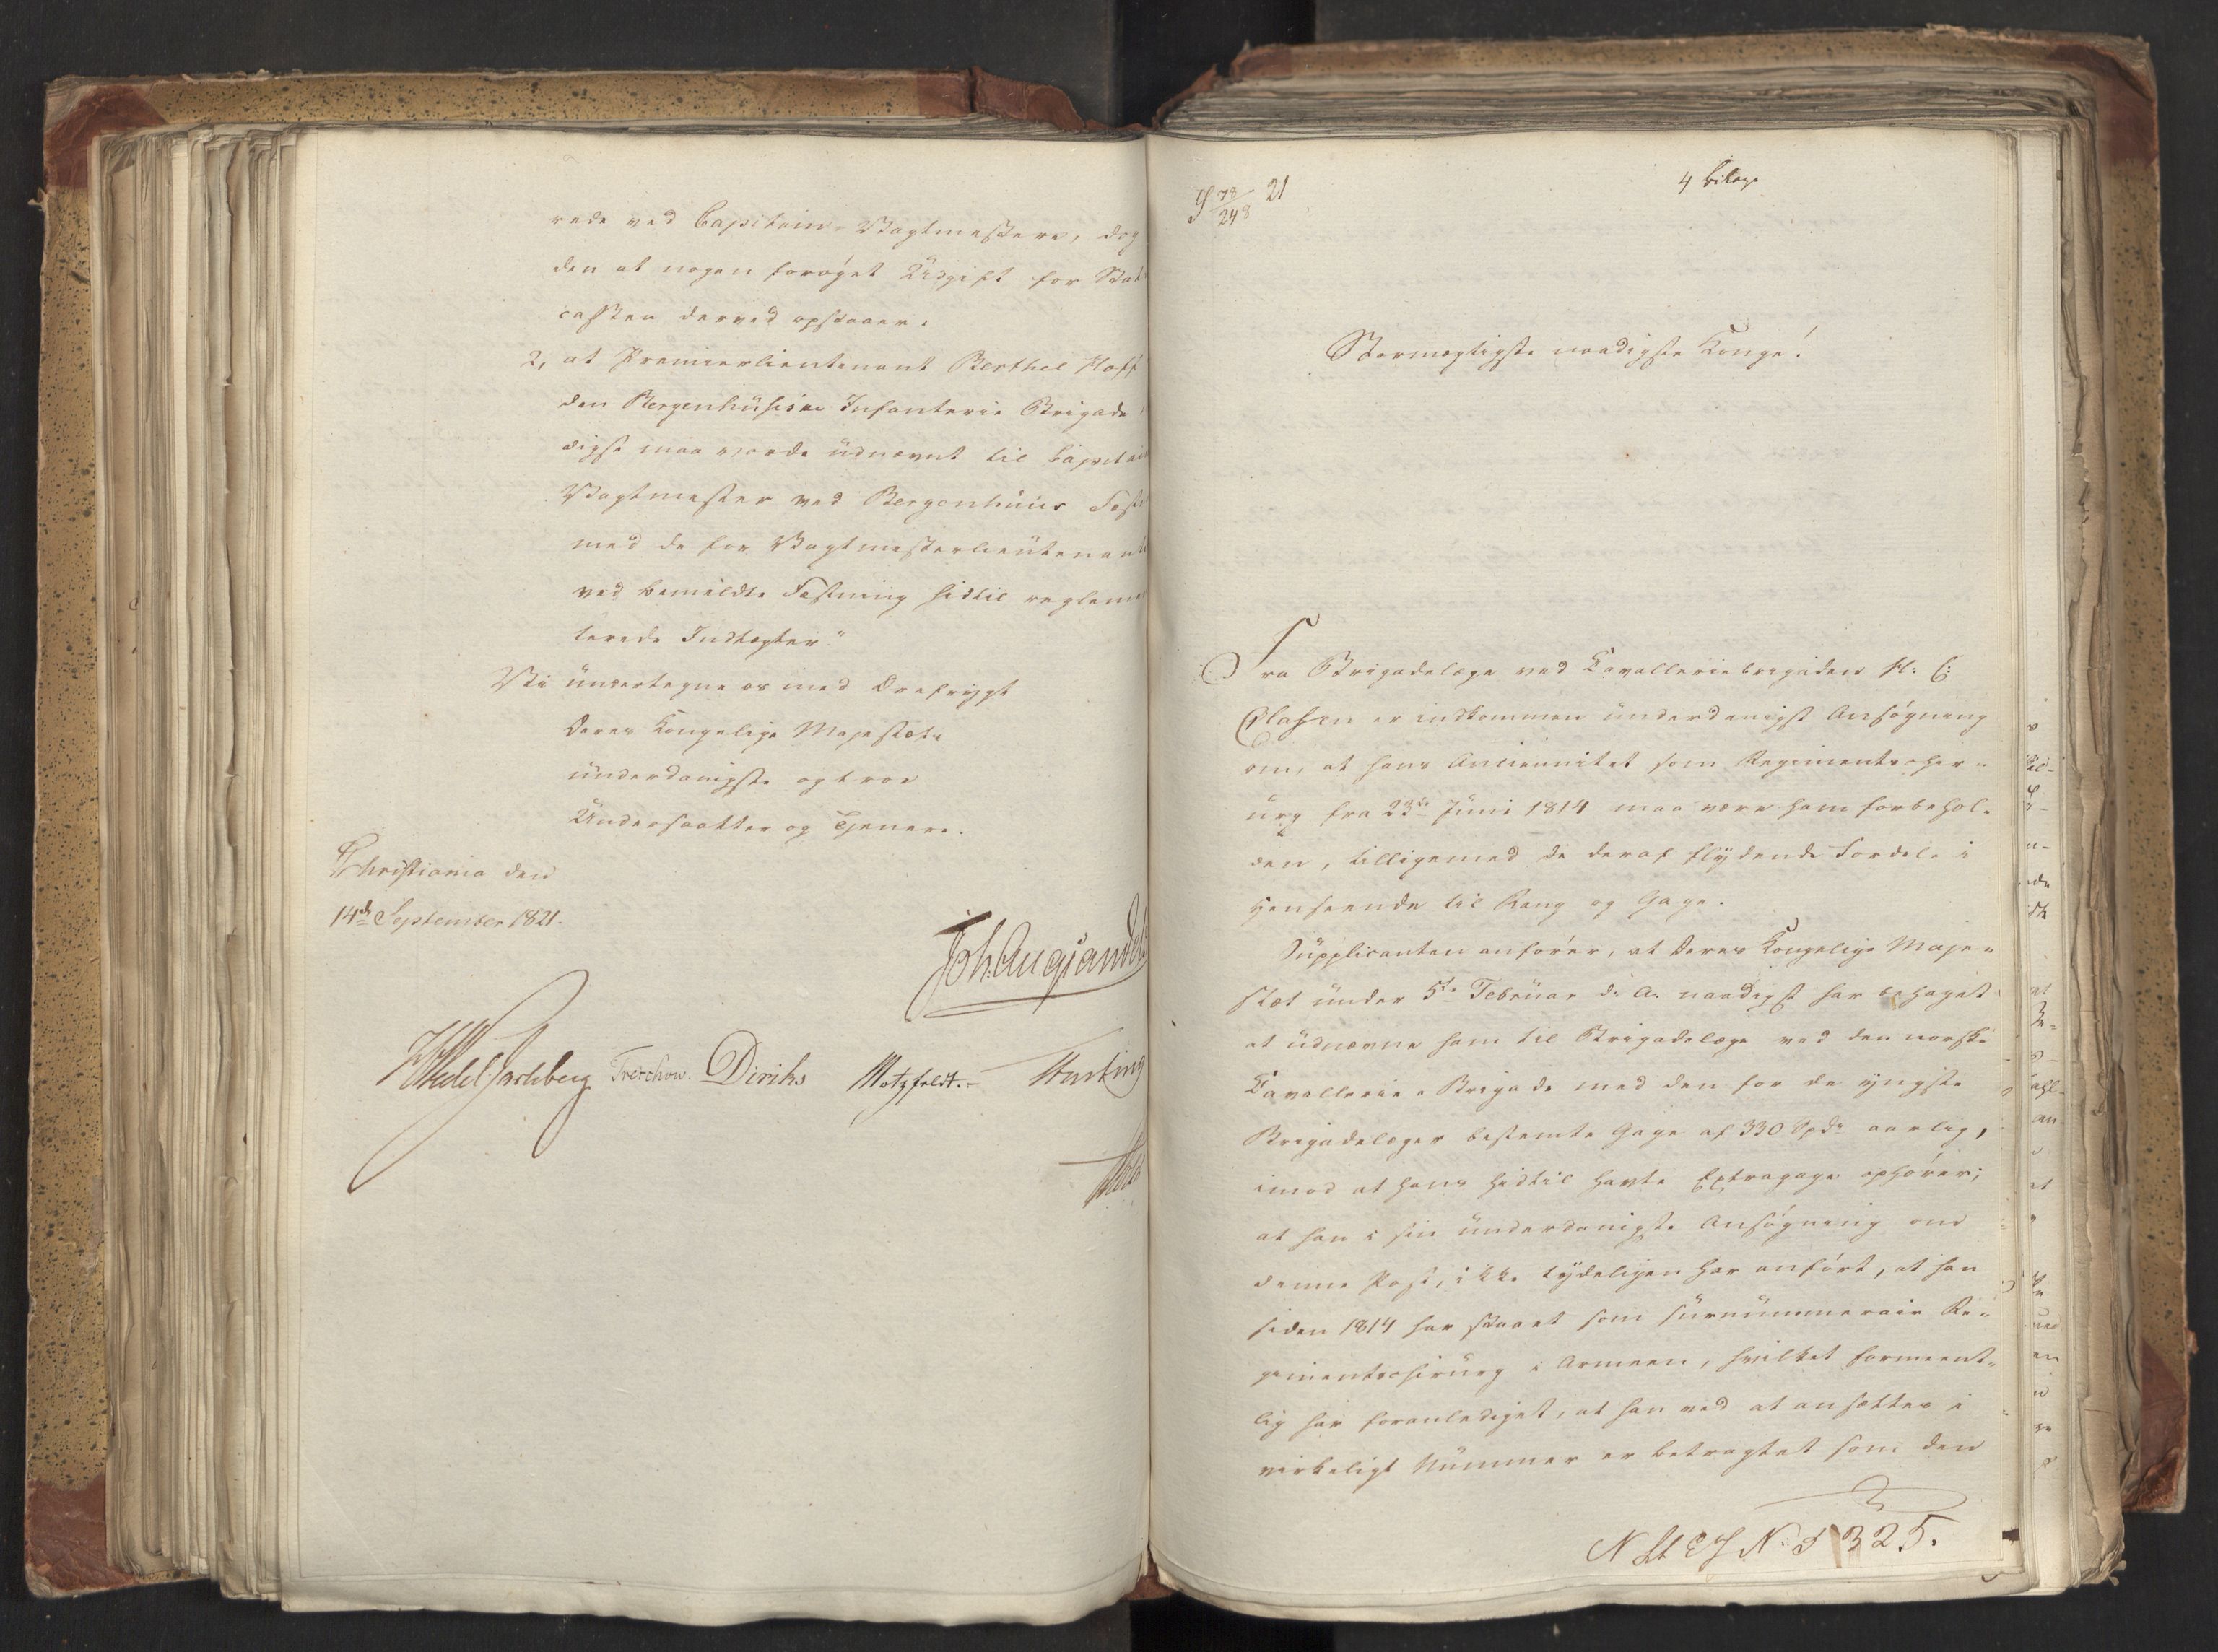 rede ved Capitain-Vagtmestere, dog
den at nogen forøget Udgift for Stats
cassen derved opstaaer.
2, at Premierlieutenant Berthel Hoff
den Bergenhusiske Infanterie Brigade
digst maa vorde udnævnt til Capitai
Vagtmester ved Bergenhuus Fæst
med de for Vagtmesterlieutenant
ved bemeldte Fæstning hidtil reglemen
terede Indtægter."
Vi undertegne os med Ærefrygt
Deres Kongelige Majestæts
underdanigste og troe
Undersaatter og Tjenere.
Christiania den
14de September 1821.
Joh. Aug. Sandels
HWedel Jarlsberg Treschow. Diriks Motzfeldt. Hasting
Holst
S 78/248 21
4 bilage
Stormægtigste naadigste Konge!
Fra Brigadelæge ved Kavalleriebrigaden H: C:
Clasen er indkommen underdanigst Ansøgning
om, at hans Anciennitet som Regimentschir-
urg fra 23de Juni 1814 maa være ham forbehol-
den, tilligemed de deraf flydende Fordele i
Henseende til Rang og Gage.
Supplicanten anfører, at Deres Kongelige Maje-
stæt under 5te Februar d: A: naadigst har behaget
at udnævne ham til Brigadelæge ved den norske
Kavallerie-Brigade med den for de yngste
Brigadelæger bestemte Gage af 330 Spd. aarlig,
imod at hans hidtil havte Extragage ophører;
at han i sin underdanigste Ansøgning om
denne Post, ikke tydeligen har anført, at han
siden 1814 har staaet som surnummerair Re-
gimentschirurg i Armeen, hvilket formeent-
lig har foranlediget, at han ved at ansættes i
virkeligt Nummer er betragtet som den
N St Ex No 325.